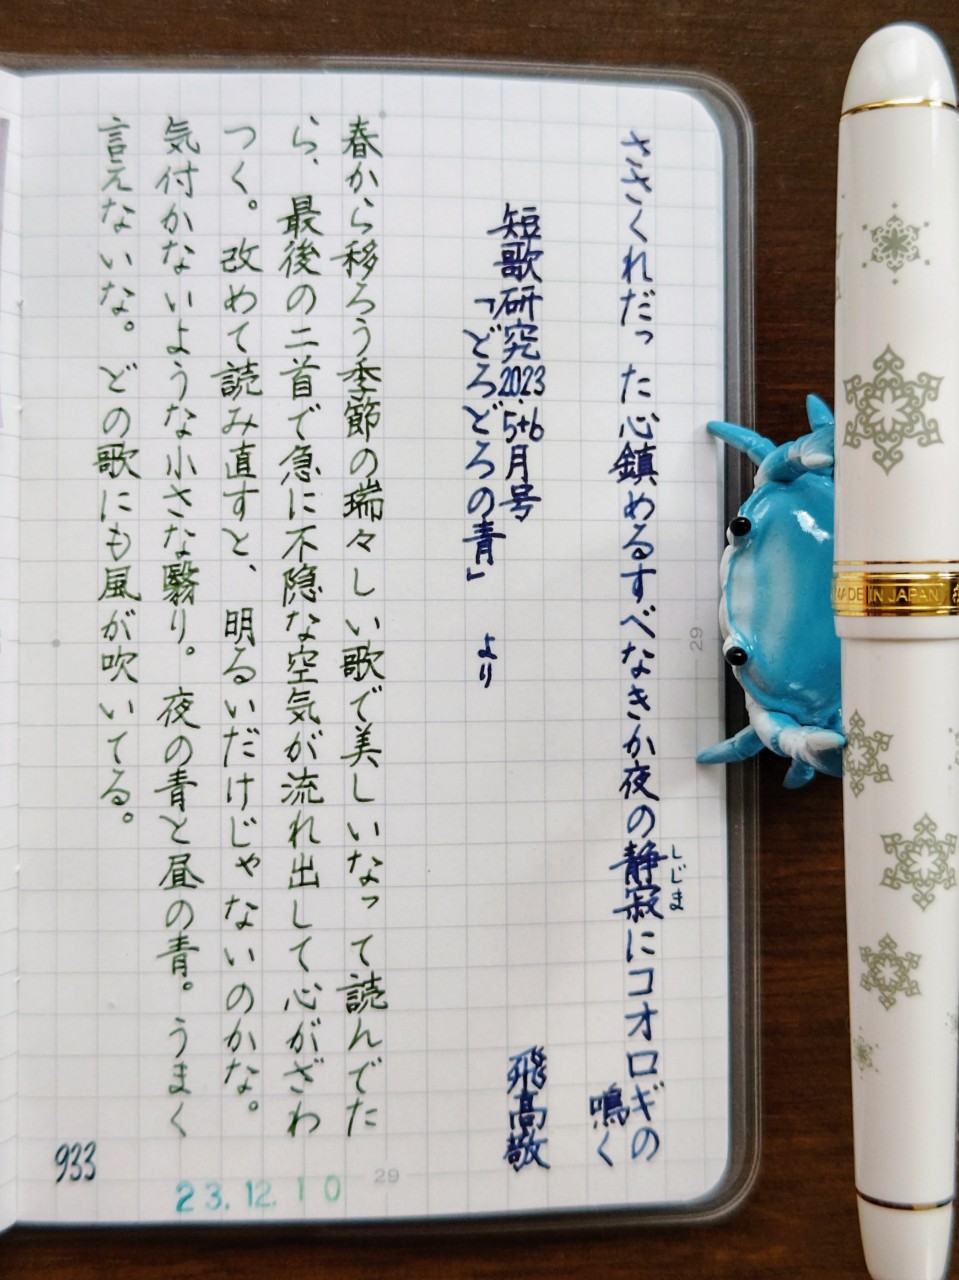 ささくれだった心鎮めるすべなきか夜の静寂にコオロギの
しじま
鳴く
短歌研究2023.5+6月号
「どろどろの青」より
飛高敬
春から移ろう季節の瑞々しい歌で美しいなって読んでた
ら、最後の二首で急に不隠な空気が流れ出して心がざわ
つく。改めて読み直すと、明るいだけじゃないのかな。
気付かないような小さな翳り。夜の青と昼の青。うまく
言えないな。どの歌にも風が吹いてる。
933
23.12.10
29
29
MADE IN JAPAN